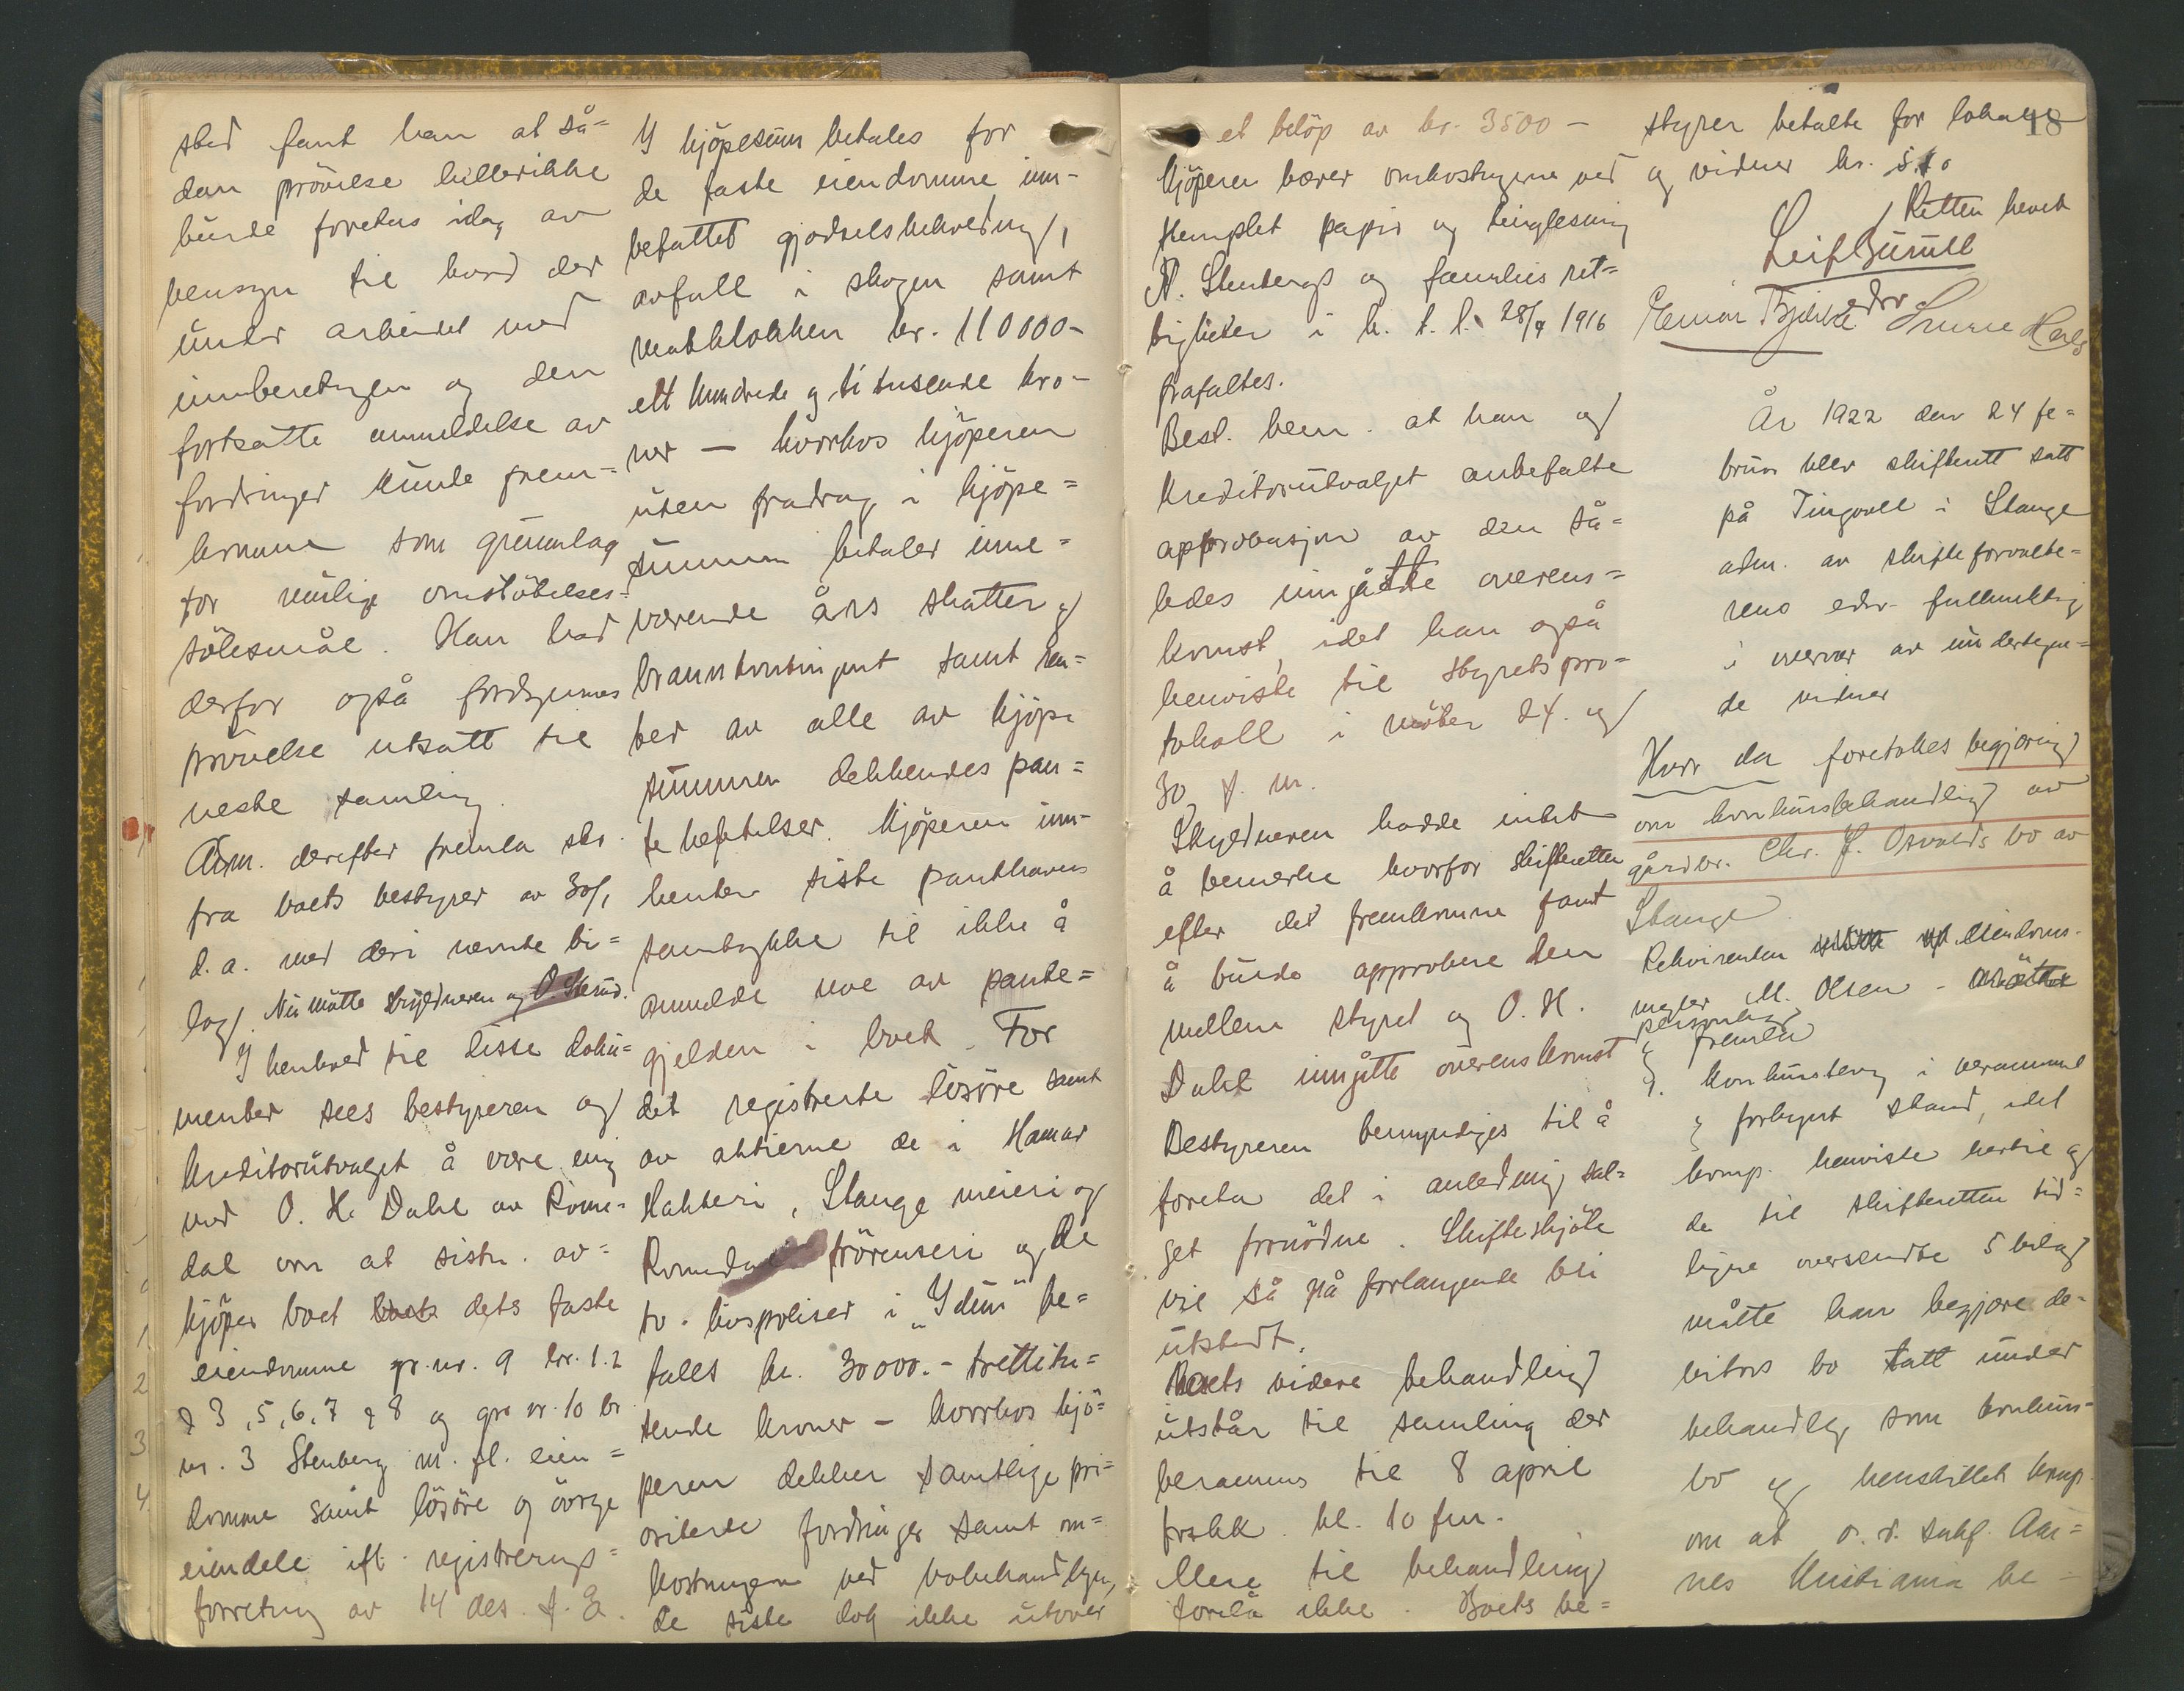 sted fant han at så=
dan prövelse hellerikke
burde foretas idag av
hensyn til hvad der
under arbeidet med
innberetnigen og den
fortsatte anmeldelse av
fordringer kunde frem-
komme som grunnlag
for mulige omstötelses-
sölesmål. Han bad
derfor også fordrigernes
prövelse utsatt til
neste samling.
Adm. derefter fremla skr.
fra boets bestyrer av 30/1
d.a. med deri nevnte bi=
lag. Nu mötte skyldneren og O. Stenb.
I henhold til disse doku=
menter sees bestyreren og
kreditorutvalget å være enig
med O. H. Dahl av Rome-
dal om at sistn. av=
kjöper boet dets faste
eiendomme gr.nr. 9 br. 1.2
& 3, 5, 6, 7 & 8 og gr. nr. 10 br
nr. 3 Stenberg m. fl. eien=
domme samt lösöre og övrige
eiendele ifl. registrerings=
forretnig av 14 des. f. å.
I kjöpesum betales for
de faste eiendomme inn-
befattet gjodselsbeholdnig,
avfall i skogen samt
vedblokken kr. 110 000-
ett hundrede og titusende kro-
ner — hvorhos kjöperen
uten fradrag i kjöpe=
summen betaler inne=
værende års skatter og
brannkontingent samt ren=
ter av alle av kjöpe
summen dekkendes pan=
te heftelser. Kjöperen inn-
henter siste panthavers
samtykke til ikke å
anmelde noe av pante=
gjelden i boet. For
det registrerte lösöre samt
av aktierne de i Hamar
Slakteri, Stange meieri og
Romedal frörenseri og de
to livspoliser i "Idun" be=
tales kr. 30 000.- trettitu=
sende kroner - hvorhos kjö=
peren dekker samtlige pri=
oriterte fordringer samt om=
kostningene ved bobehandlingen,
de siste dog ikke utover
et belöp av kr. 3500 -
Kjöperen bærer omkostnigerne ved
stemplet papir og tinglesning
A. Stenbergs og families ret=
tigheter i h. t. l. 28/4 1916
frafaltes.
Best. bem. at han og
kreditorutvalget anbefalte
approbasjon av den så=
ledes inngåtte overens=
komst, idet han også
henviste til styrets pro=
tokoll i möter 24. og
30 f. m.
Skyldneren hadde intet
å bemerke hvorfor skifteretten
efter det fremkomne fant
å burde approbere den
mellem styret og O. H.
Dahl inngåtte overenskomst
Bestyreren bemyndiges til å
foreta det i anledning sal=
get fornödne. Skifteskjöte
vil så på forlangende bli
utstedt.
Boets videre behandling
utstår til samling der
berammes til 8 april
frstkk. kl. 10 fm.
Mere til behandling
forelå ikke. Boets be=
18
styrer betalte for lokale
og vidner kr.
Retten hevet
Leif Gurull
Einar Bjerke
edsv
År 1922 den 24 fe=
bruar blev skifterett satt
på Tingvoll i Stange
adm. av skifteforvalte-
rens edsv. fullmektig
i overvær av undertegne=
de vidner
Hvor da foretokes begjæring
om konkursbehandling av
gårdbr. Chr. J. Osvolds bo av
Stange
Rekvirenten eiendoms-
megler M. Olsen - mötte
personlig
& fremla
1. konkursbeg. i verammel
& forkynt stand, idet
komp. henviste hertil og
de til skifteretten tid=
ligere oversendte 5 bilag
måtte han begjære de-
bitors bo tatt under
behandlig som konkurs-
bo og henstillet komp.
om at o. r. sakf. Aar=
nes Kristiania be=